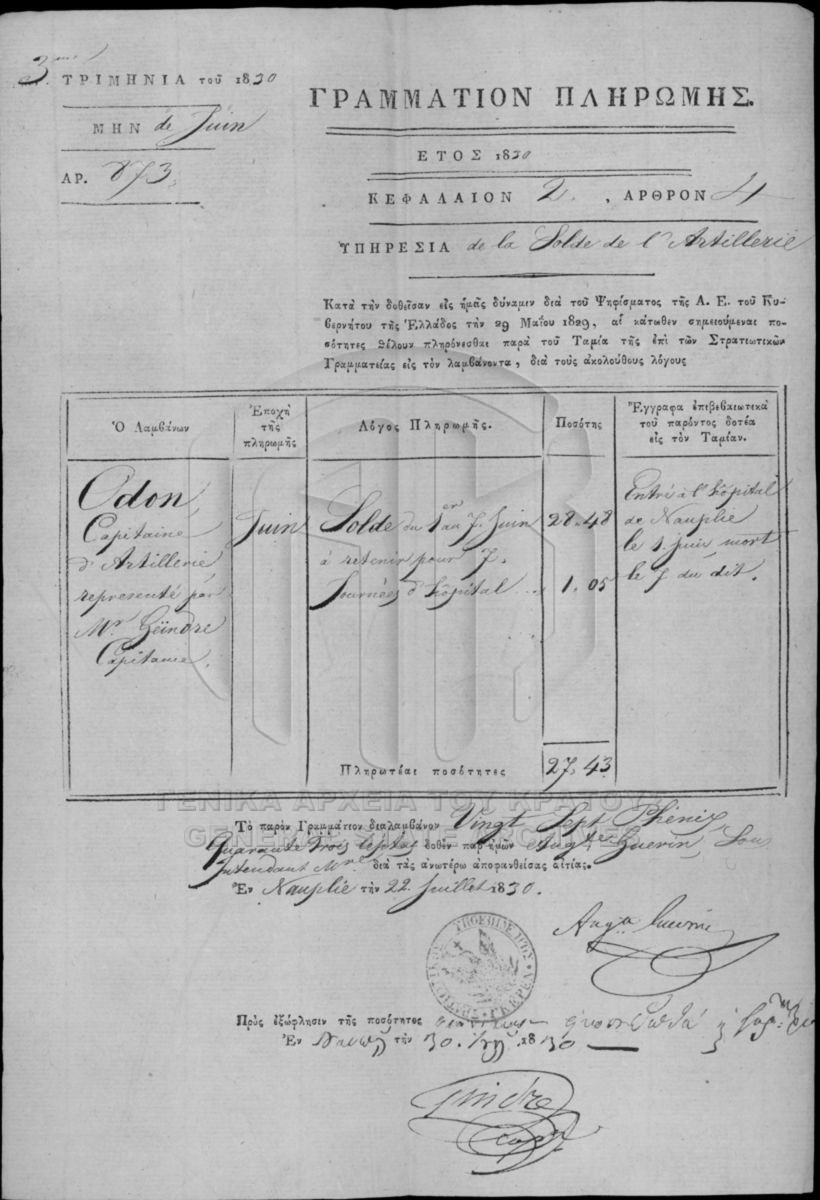 3me ΤΡΙΜΗΝΙΑ τοῦ 1830
ΜΗΝ de Juin
ΑΡ. 873.
ΓΡΑΜΜΑΤΙΟΝ ΠΛΗΡΩΜΗΣ.
ΕΤΟΣ 1830
ΚΕΦΑΛΑΙΟΝ 2. , ΑΡΘΡΟΝ 4
ΥΠΗΡΕΣΙΑ de la Solde de l'Artillerie
Κατὰ τὴν δοθεῖσαν εἰς ἡμᾶς δύναμιν διὰ τοῦ Ψηφίσματος τῆς Α. Ε. τοῦ Κυ-
βερνήτου τῆς Ἑλλάδος τὴν 29 Μαΐου 1829, αἱ κάτωθεν σημειούμεναι πο-
σότητες θέλουν πληρόνεσθαι παρὰ τοῦ Ταμία τῆς ἐπὶ τῶν Στρατιωτικῶν
Γραμματείας εἰς τὸν λαμβάνοντα, διὰ τοὺς ἀκολούθους λόγους
Ὁ Λαμβάνων
Ἐποχὴ
τῆς
πληρωμῆς
Λόγος Πληρωμῆς.
Ποσότης
Ἔγγραφα ἐπιβεβαιωτικὰ
τοῦ παρόντος δοτέα
εἰς τὸν Ταμίαν.
Odon,
Capitaine
d'Artillerie
representé par
Mr Geindre
Capitaine.
Juin
Solde du 1er au 7. Juin
à retenir pour 7.
Journées d'hôpital
28.48
1.05
Entré à l'hôpital
de Nauplie
le 1. juin mort
le 7 du dit.
Πληρωτέαι ποσότητες
27.43
ΓΕΝΙΚΑ ΑΡΧΕΙΑ ΤΟΥ ΚΡΑΤΟΥΣ
GENERAL STATE ARCHIVES
Τὸ παρὸν Γραμμάτιον διαλαμβάνον Vingt Sept Phénix
Quarante Trois leptas δοθὲν παρ' ἡμῶν Augte Guerin, Sou
Intendant Mre διὰ τὰς ἀνωτέρω ἀποφανθείσας αἰτίας.
Ἐν Nauplie τὴν 22 Juillet 1830.
Augte Guerin
Πρὸς ἐξώφλησιν τῆς ποσότητος
Ἐν τὴν 30. 1830
Geindre
capne